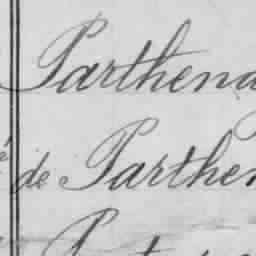 Parthena
de Parthen